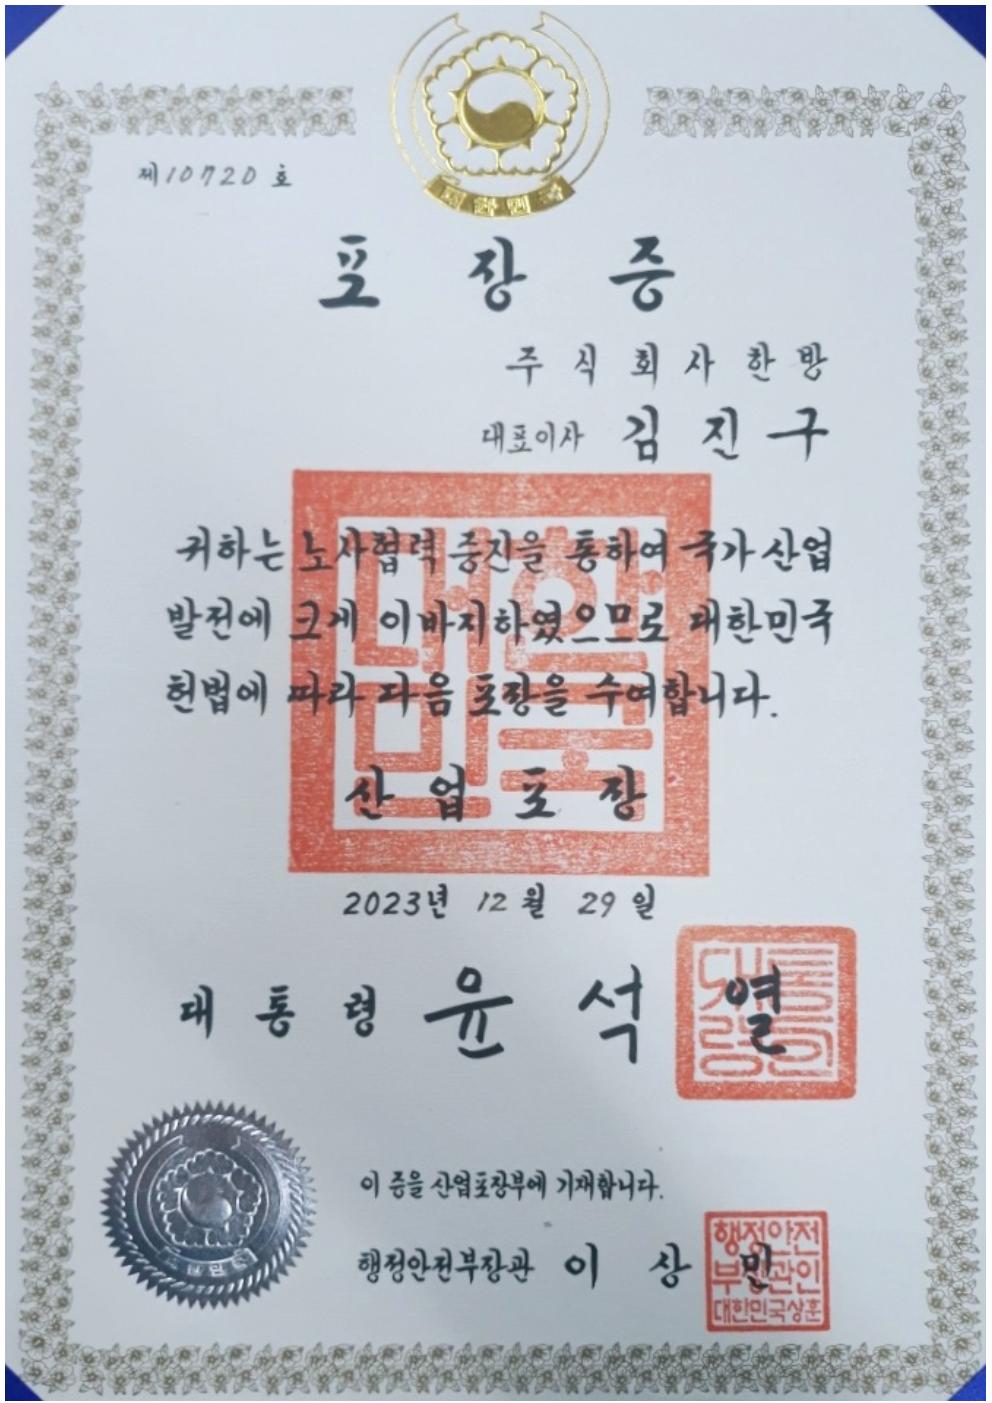 대한민국
제10720호
포장증
주식회사한방
대표이사 김진구
귀하는 노사협력 증진을 통하여 국가 산업
발전에 크게 이바지하였으므로 대한민국
헌법에 따라 다음 포장을 수여합니다.
대한민국
산업포장
2023년 12월 29일
대통령 윤석열
대통령의인
이 증을 산업포장부에 기재합니다.
행정안전부장관 이상민
행정안전
부장관인
대한민국상훈
대한민국